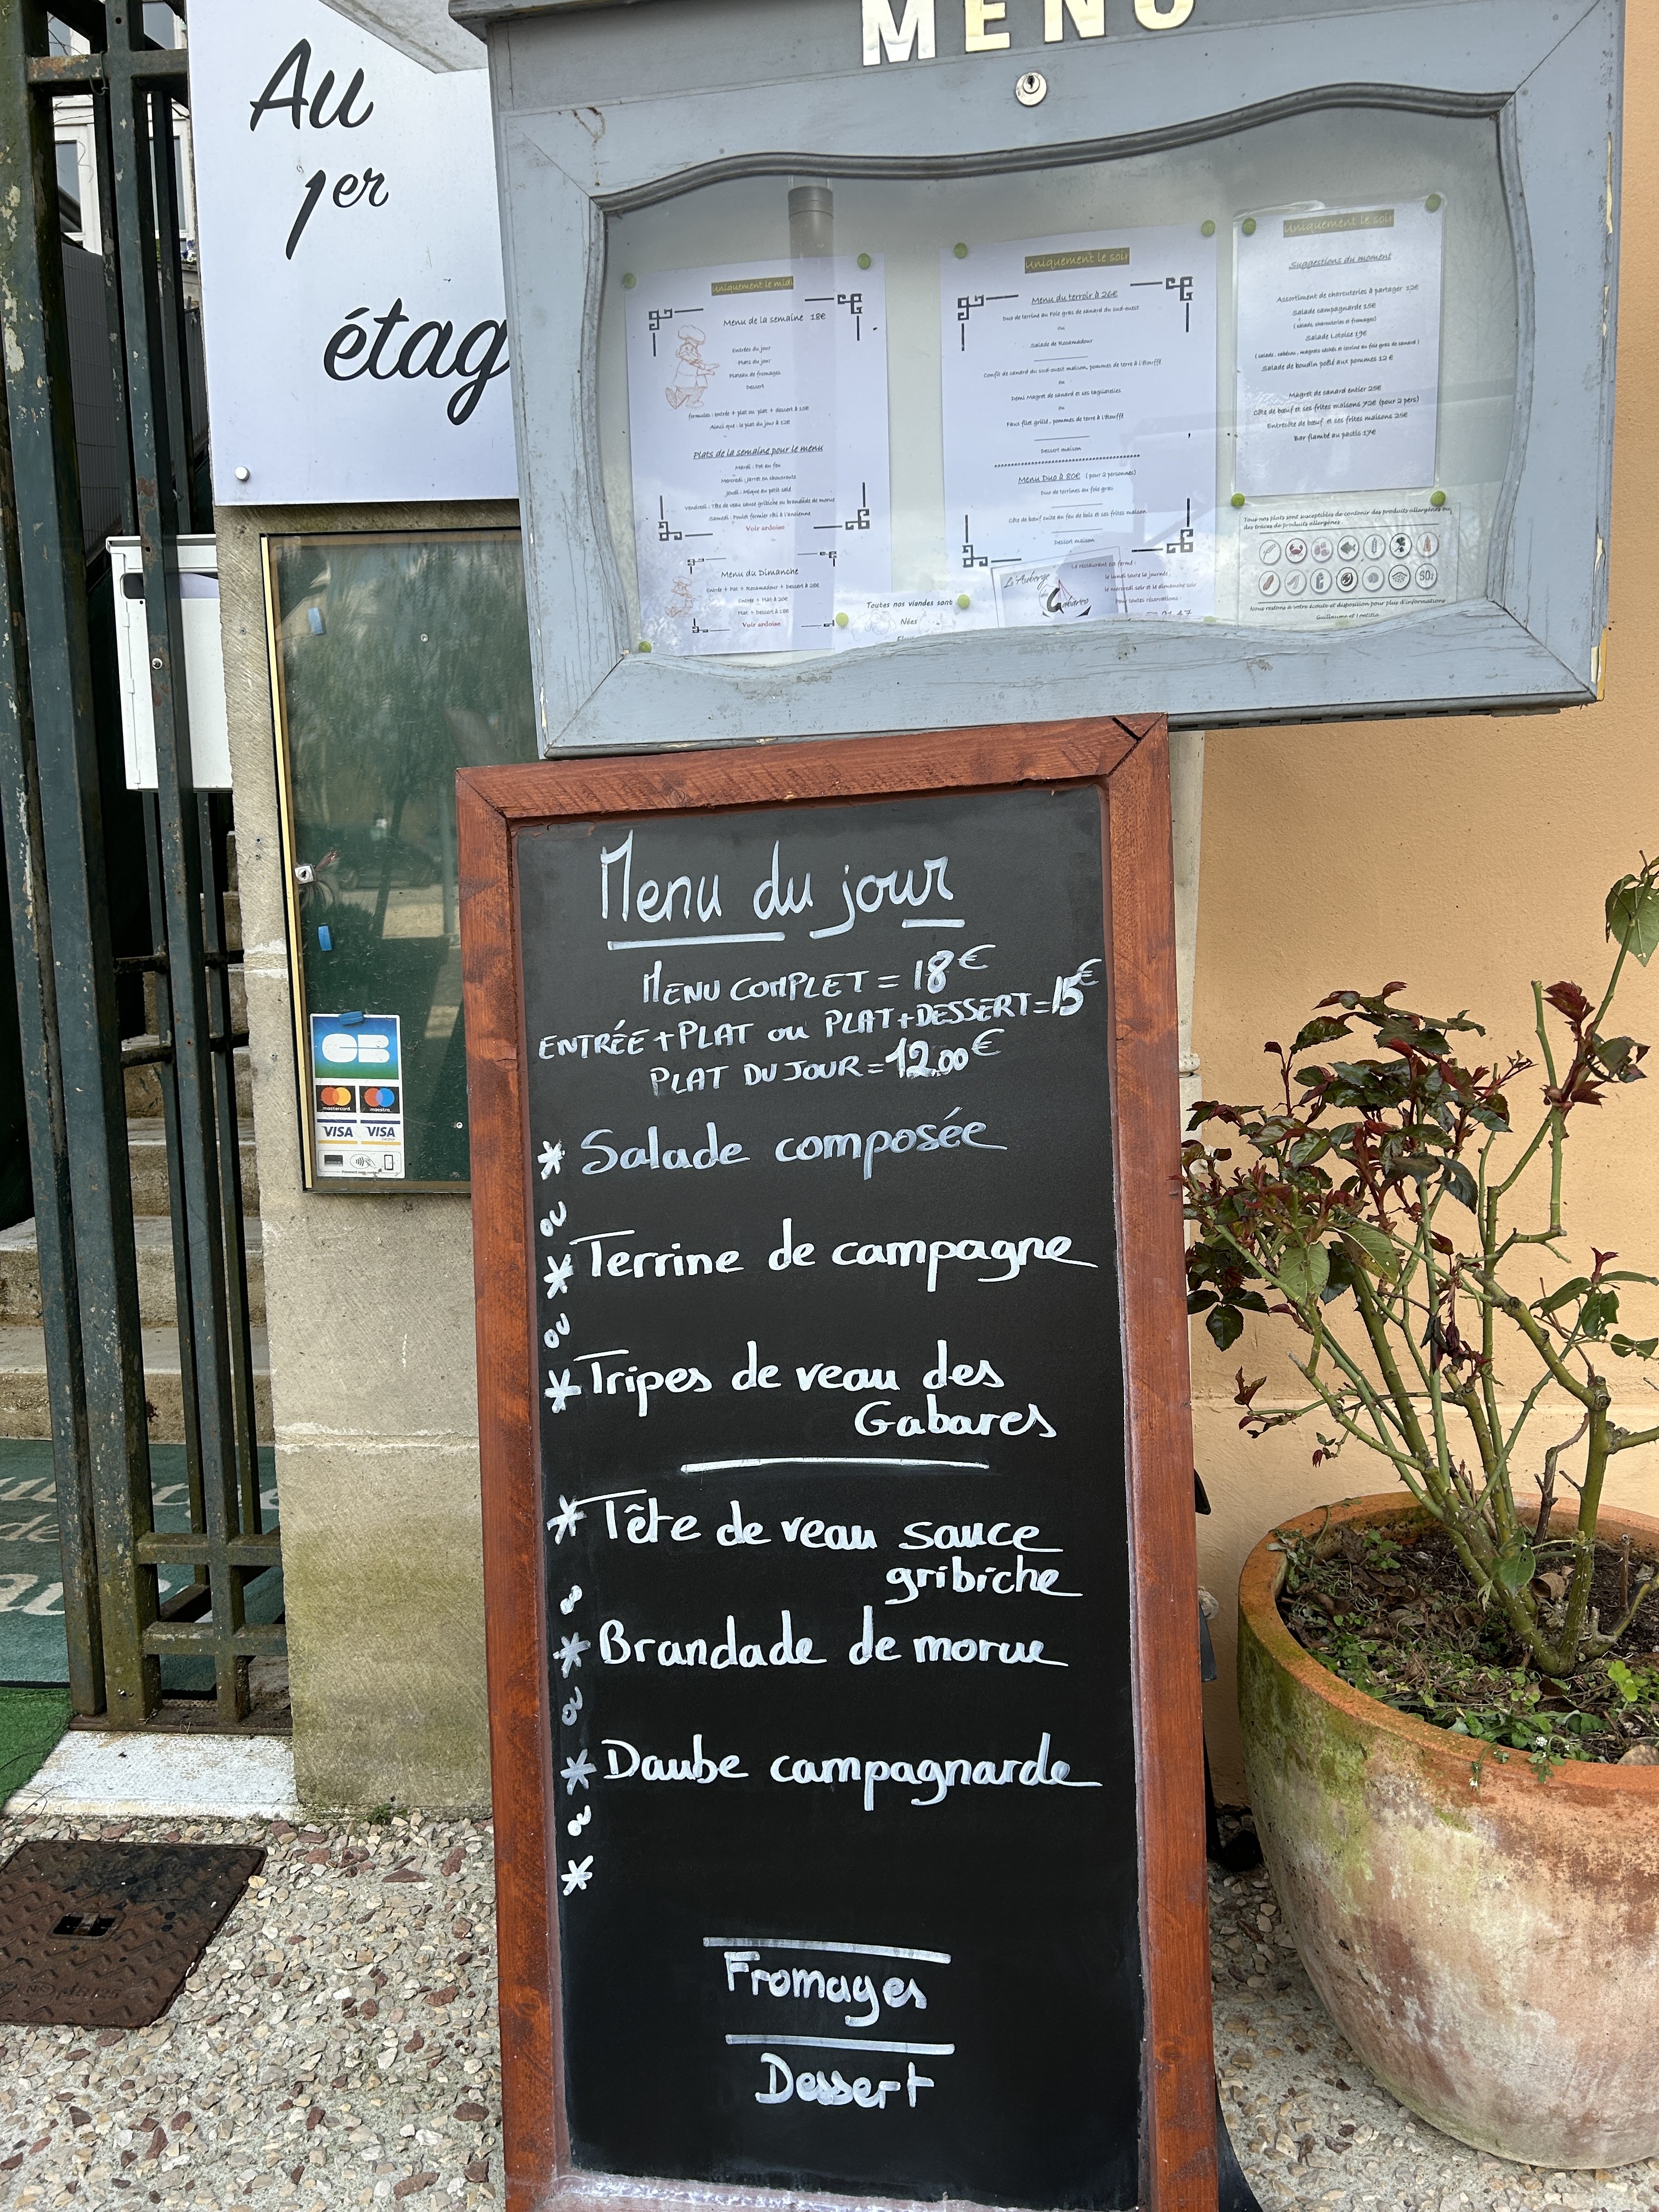 Au
1er
étag
MENU
Uniquement le midi
Menu de la semaine 18€
Entrées du jour
Plats du jour
Plateau de fromages
Dessert
formules : entrée + plat ou plat + dessert à 15€
Ainsi que : le plat du jour à 12€
Plats de la semaine pour le menu
Mardi : Pot au feu
Mercredi : Jarret en choucroute
Jeudi : Mique au petit salé
Vendredi : Tête de veau sauce gribiche ou brandade de morue
Samedi : Poulet fermier rôti à l'ancienne
Voir ardoise
Menu du Dimanche
Entrée + Plat + Rocamadour + Dessert à 26€
Entrée + Plat à 20€
Plat + Dessert à
Voir ardoise
Uniquement le soir
Menu du terroir à 26€
Duo de terrine au Foie gras de canard du sud-ouest
ou
Salade de Rocamadour
Confit de canard du sud-ouest maison, pommes de terre à l'étouffé
ou
Demi Magret de canard et ses tagliatelles
ou
Faux filet grillé, pommes de terre à l'étouffé
Dessert maison
Menu Duo à 80€ (pour 2 personnes)
Duo de terrines au foie gras
Côte de bœuf cuite au feu de bois et ses frites maison
Dessert maison
L'Auberge
Gabares
Le restaurant est fermé :
le lundi toute la journée,
le mercredi soir et le dimanche soir
Pour toutes réservations :
Toutes nos viandes sont
Nées
Uniquement le soir
Suggestions du moment
Assortiment de charcuteries à partager 12€
Salade campagnarde 15€
(salade, charcuteries et fromages)
Salade Lotoise 19€
(salade, cabécou, magrets séchés et terrine au foie gras de canard)
Salade de boudin poêlé aux pommes 12 €
Magret de canard entier 25€
Côte de bœuf et ses frites maisons 72€ (pour 2 pers)
Entrecôte de bœuf et ses frites maisons 25€
Bar flambé au pastis 17€
Tous nos plats sont susceptibles de contenir des produits allergènes ou
des traces de produits allergènes
Nous restons à votre écoute et disposition pour plus d'informations
Guillaume et Laetitia
CB
mastercard maestro
VISA VISA
Menu du jour
MENU COMPLET = 18€
ENTRÉE + PLAT ou PLAT + DESSERT = 15€
PLAT DU JOUR = 12.00€
* Salade composée
ou
* Terrine de campagne
ou
* Tripes de veau des
Gabares
* Tête de veau sauce
gribiche
ou
* Brandade de morue
ou
* Daube campagnarde
ou
*
Fromages
Dessert